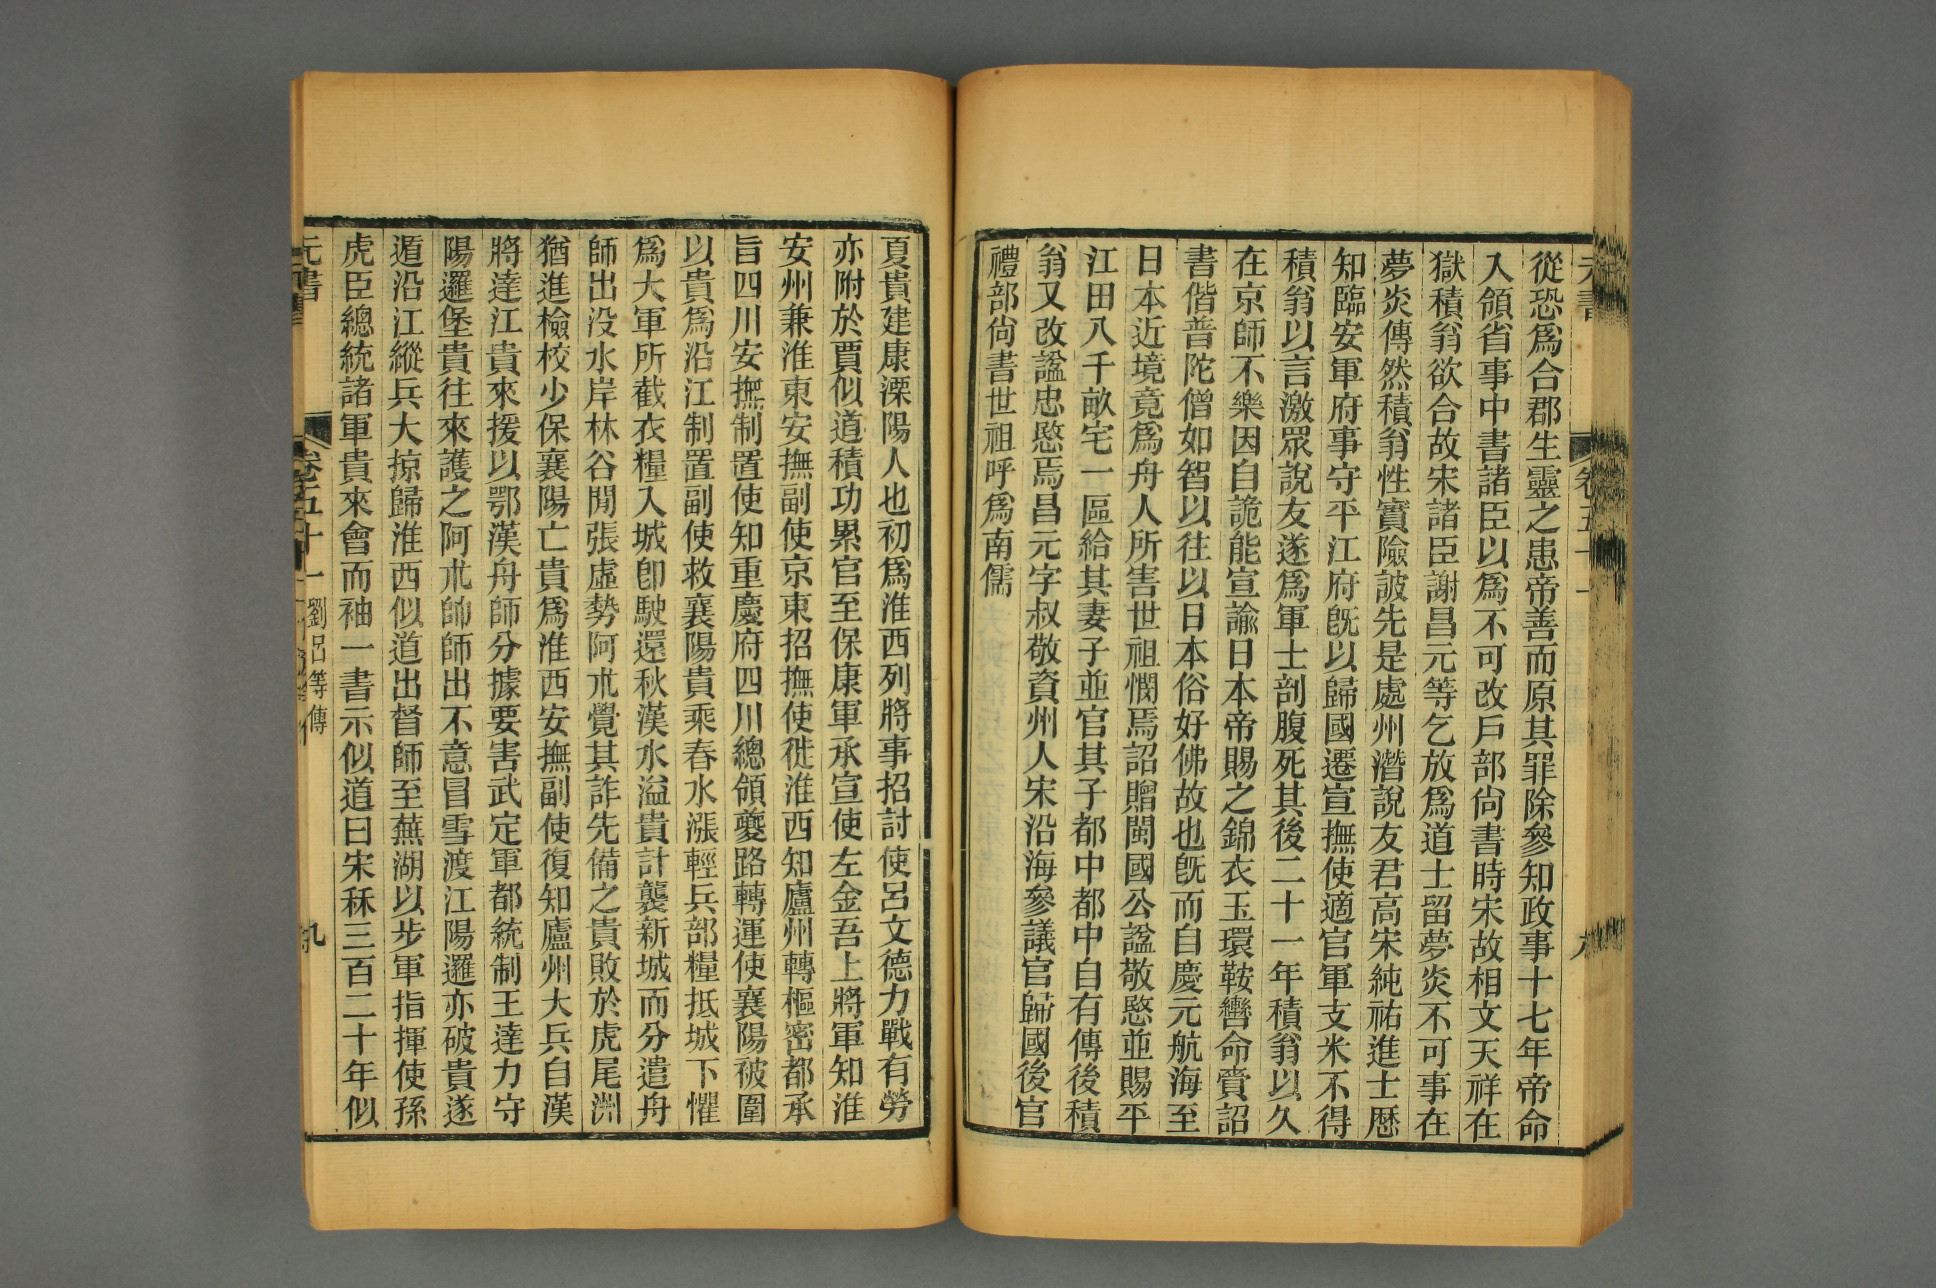 從恐爲合郡生靈之患帝善而原其罪除參知政事十七年帝命
入領省事中書諸臣以爲不可改戶部尙書時宋故相文天祥在
獄積翁欲合故宋諸臣謝昌元等乞放爲道士留夢炎不可事在
夢炎傳然積翁性實險詖先是處州潛說友君高宋純祐進士歷
知臨安軍府事守平江府旣以歸國遷宣撫使適官軍支米不得
積翁以言激眾說友遂爲軍士剖腹死其後二十一年積翁以久
在京師不樂因自詭能宣諭日本帝賜之錦衣玉環鞍轡命賫詔
書偕普陀僧如智以往以日本俗好佛故也旣而自慶元航海至
日本近境竟爲舟人所害世祖憫焉詔贈閩國公諡敬愍並賜平
江田八千畝宅一區給其妻子並官其子都中都中自有傳後積
翁又改諡忠愍焉昌元字叔敬資州人宋沿海參議官歸國後官
禮部尙書世祖呼爲南儒
夏貴建康溧陽人也初爲淮西列將事招討使呂文德力戰有勞
亦附於賈似道積功累官至保康軍承宣使左金吾上將軍知淮
安州兼淮東安撫副使京東招撫使徙淮西知廬州轉樞密都承
旨四川安撫制置使知重慶府四川總領夔路轉運使襄陽被圍
以貴爲沿江制置副使救襄陽貴乘春水漲輕兵部糧抵城下懼
爲大軍所截衣糧入城卽駛還秋漢水溢貴計襲新城而分遣舟
師出没水岸林谷閒張虛勢阿朮覺其詐先備之貴敗於虎尾洲
猶進檢校少保襄陽亡貴爲淮西安撫副使復知廬州大兵自漢
將達江貴來援以鄂漢舟師分據要害武定軍都統制王達力守
陽邏堡貴往來護之阿朮帥師出不意冒雪渡江陽邏亦破貴遂
遁沿江縱兵大掠歸淮西似道出督師至蕪湖以步軍指揮使孫
虎臣總統諸軍貴來會而袖一書示似道曰宋秝三百二十年似
元書 卷五十一 劉呂等傳 九